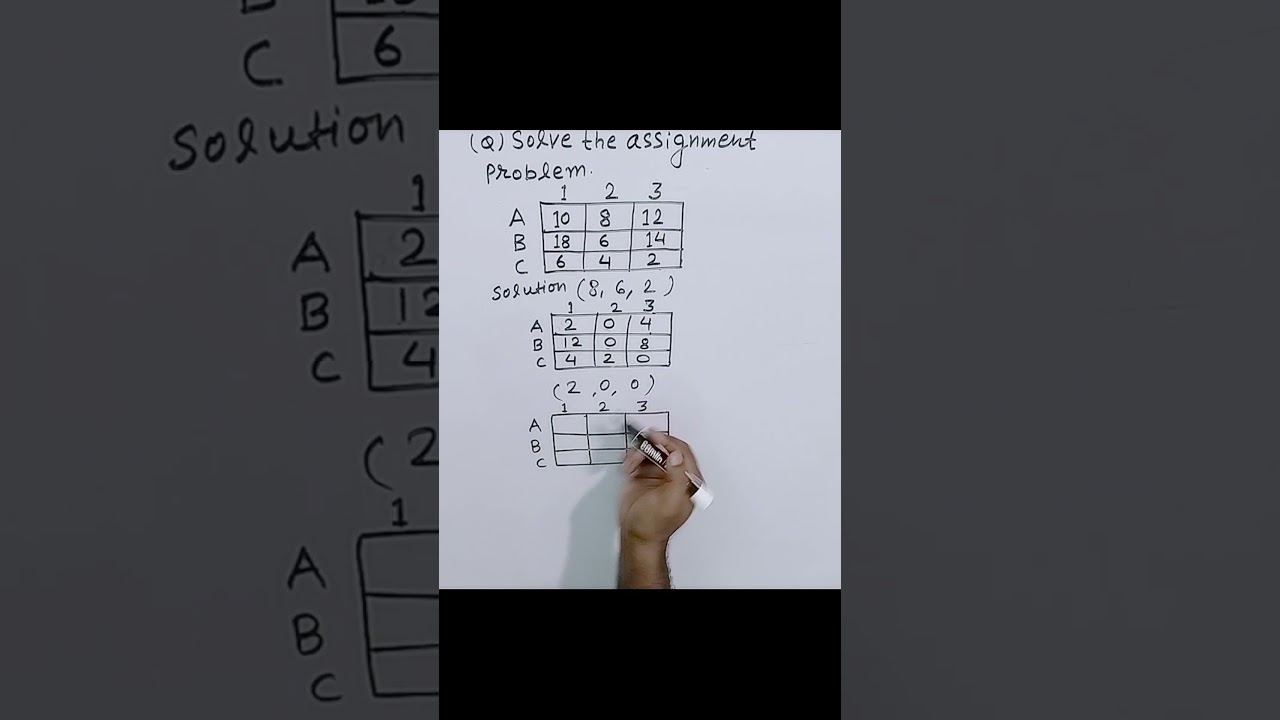 (Q) Solve the assignment
problem.
1 2 3
A 10 8 12
B 18 6 14
C 6 4 2
solution (8, 6, 2)
1 2 3
A 2 0 4
B 12 0 8
C 4 2 0
(2, 0, 0)
1 2 3
A
B
C